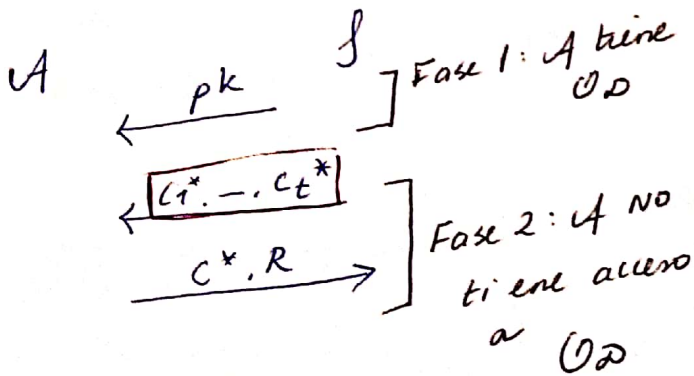 A
S
pk
Fase 1: A tiene
O_D
C1*. —. Ct*
C*, R
Fase 2: A NO
tiene acceso
a O_D